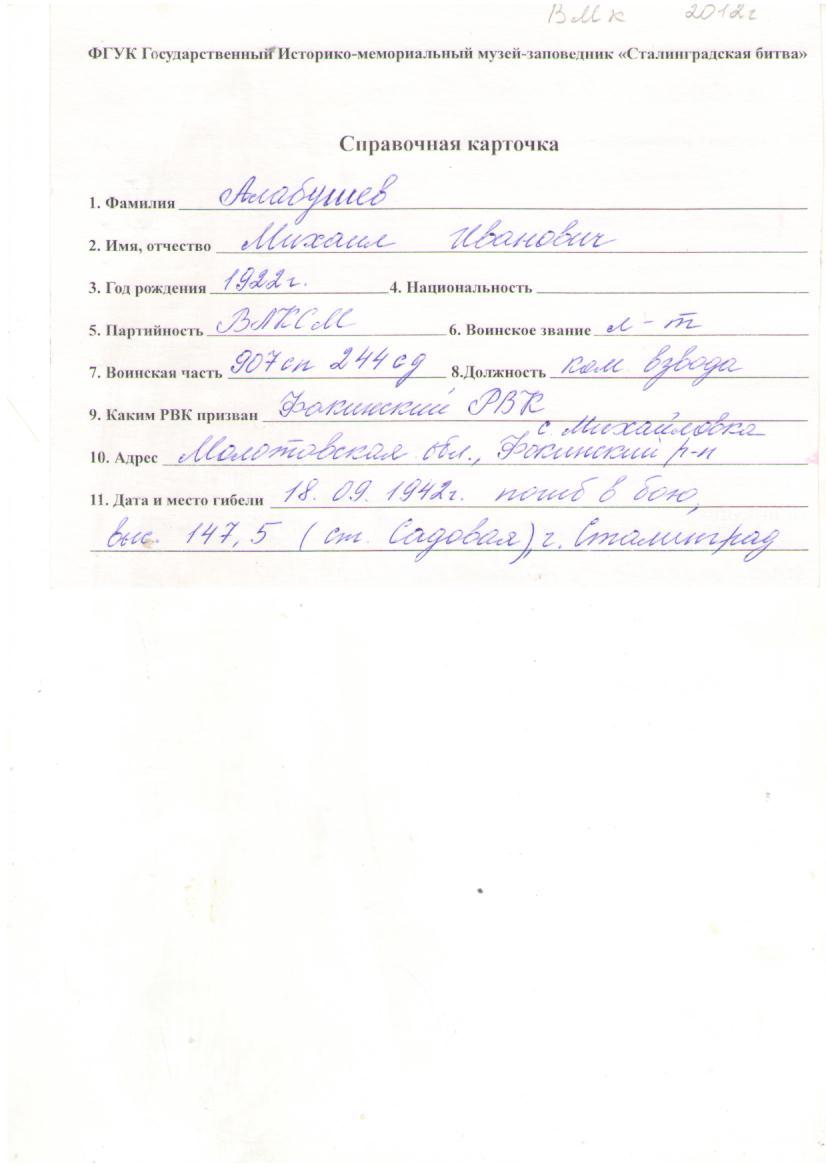 ВМк 2012г
ФГУК Государственный Историко-мемориальный музей-заповедник «Сталинградская битва»
Справочная карточка
1. Фамилия Алабушев
2. Имя, отчество Михаил Иванович
3. Год рождения 1922г. 4. Национальность
5. Партийность ВЛКСМ 6. Воинское звание л-т
7. Воинская часть 907сп 244сд 8.Должность ком. взвода
9. Каким РВК призван Фокинский РВК
с Михайловка
10. Адрес Молотовская обл., Фокинский р-н
11. Дата и место гибели 18. 09. 1942г. погиб в бою,
выс. 147,5 (ст. Садовая), г. Сталинград